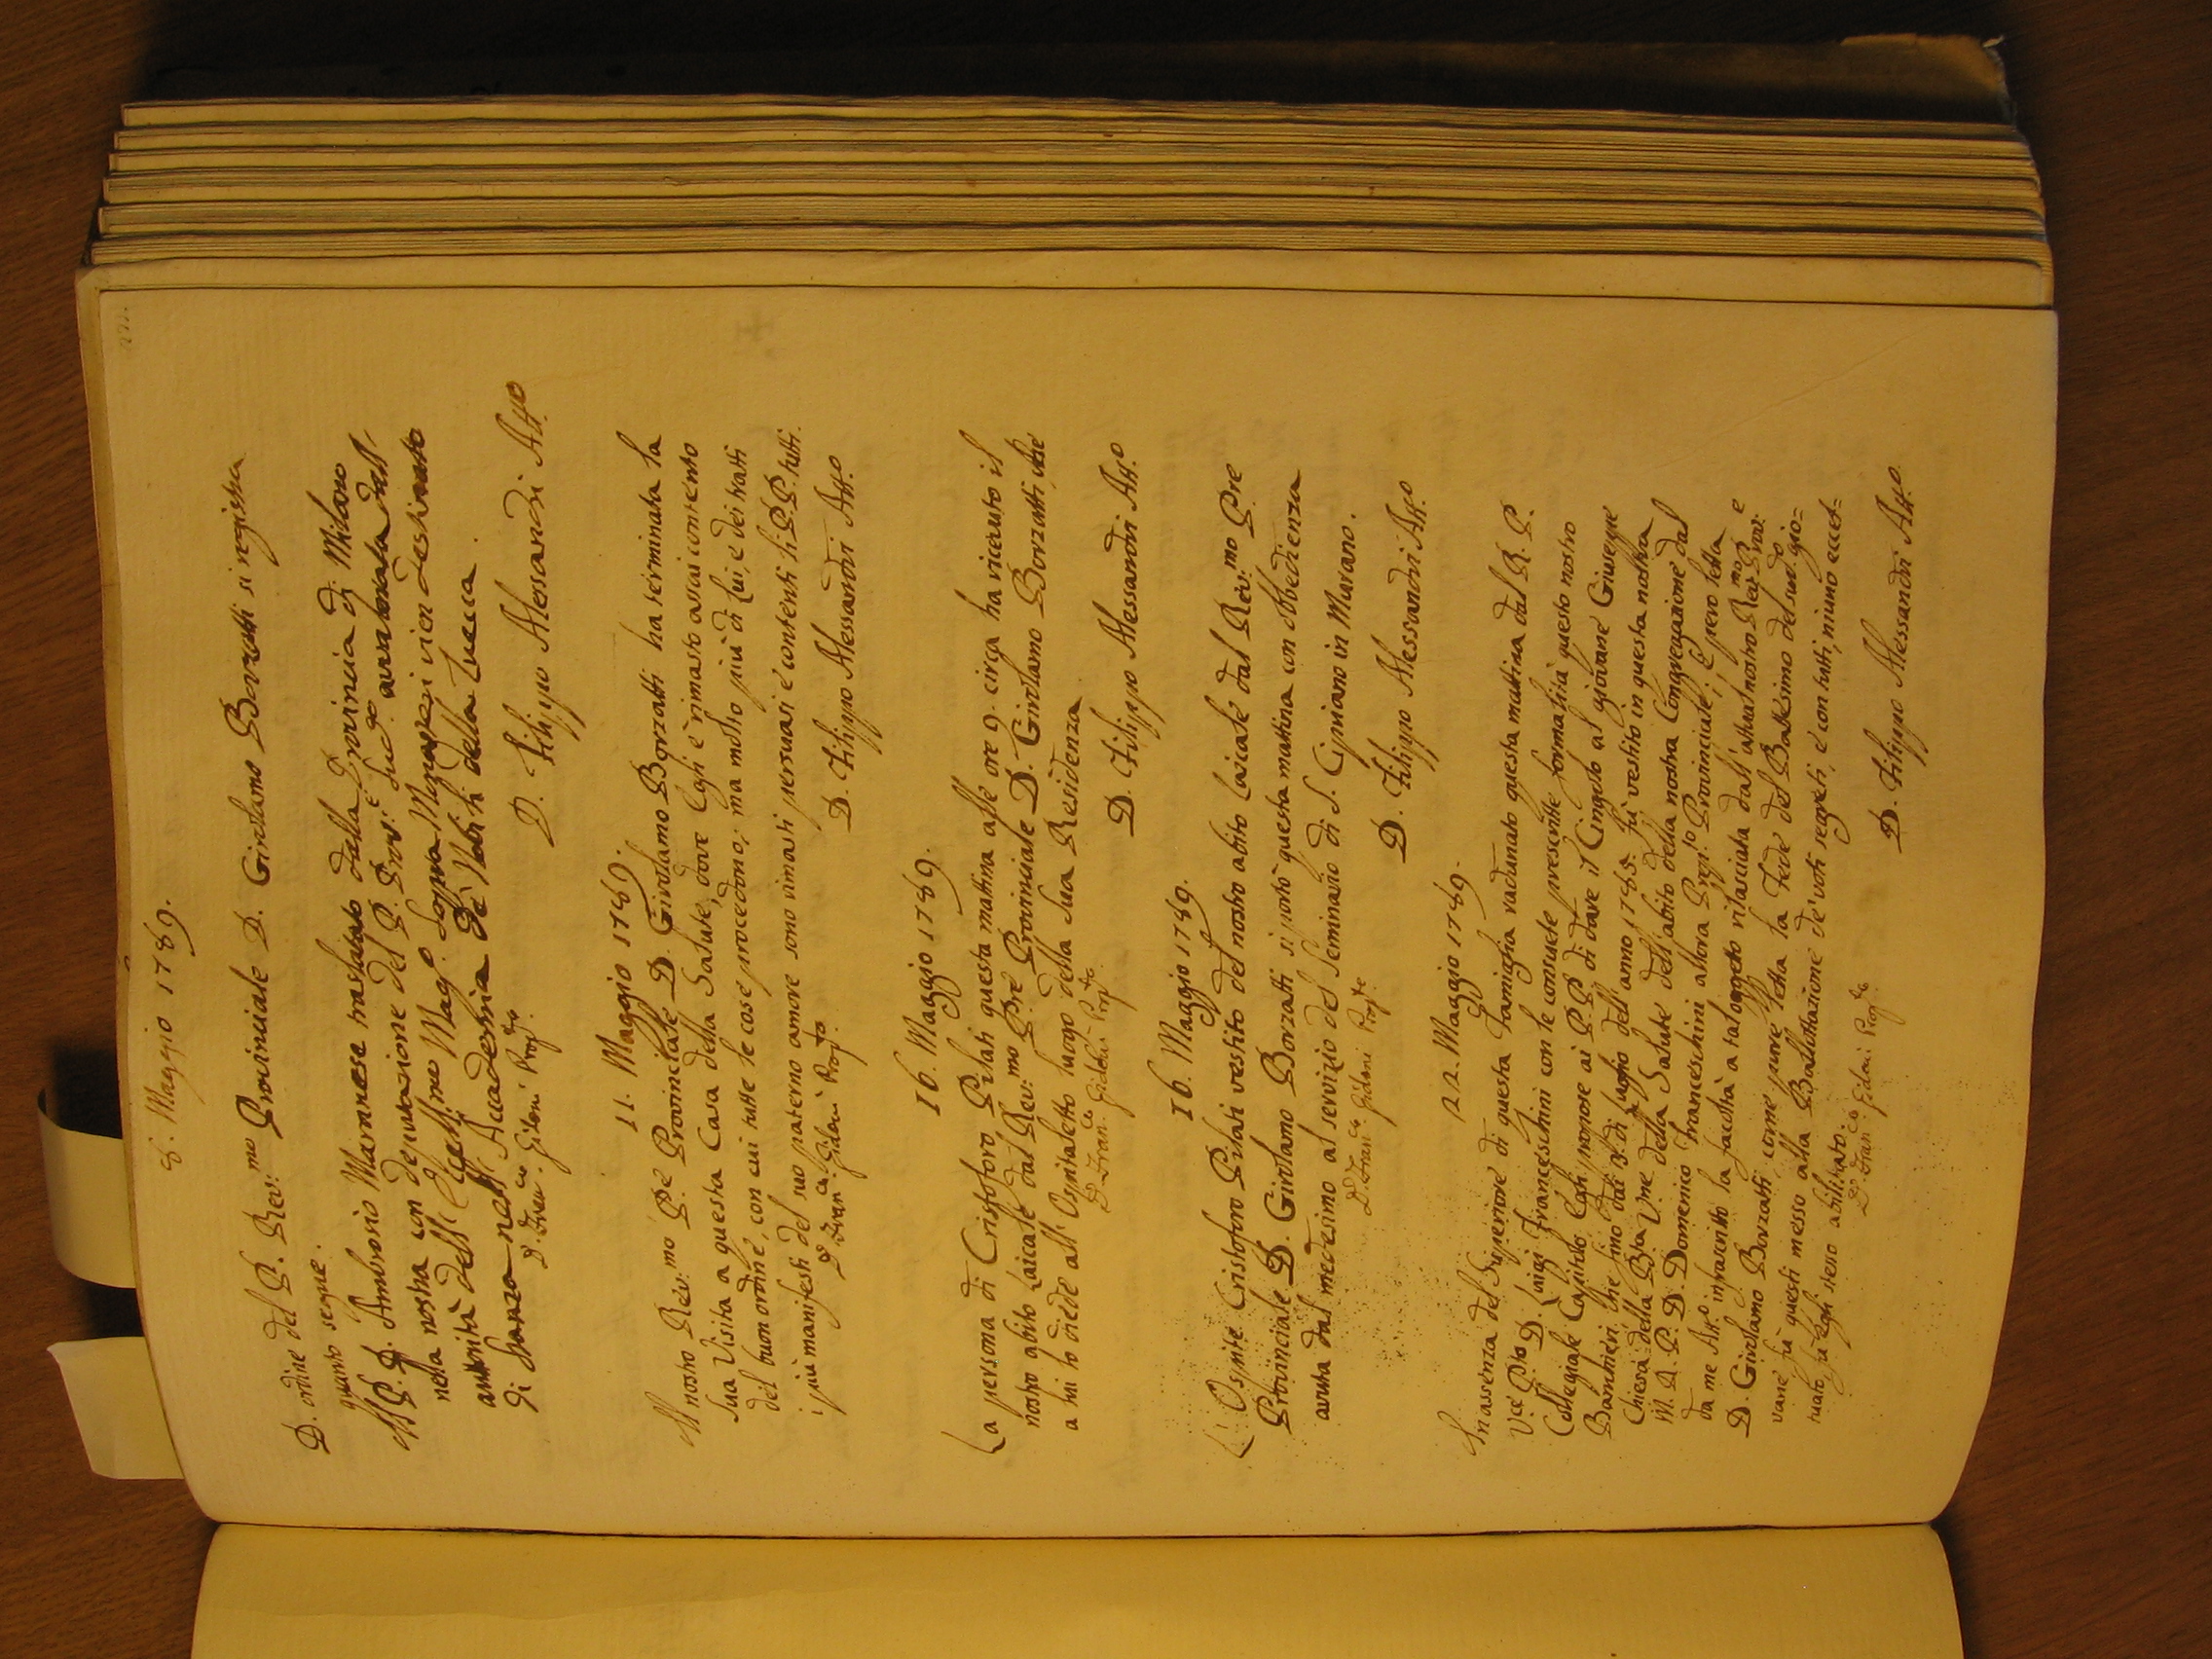 8. Maggio 1789.
D. ordine del P. Rev:mo Provinciale D. Girolamo Borzatti si registra
quanto segue.
Il P. D. Ambrosio Marnese traslatato dalla Provincia di Milano
nella nostra con deputazione del P. Prov: è sud.o avvalorata dall'
autorità dell' Eccell:mo Mag.o sopra Monasteri vien destinato
di stanza nell' Accademia de' Nobili della Zuecca.
D. Filippo Alessandri Att.o
D. Fran.co Gidoni Prop.to
11. Maggio 1789.
Il nostro Rev:mo P.re Provinciale D. Girolamo Borzatti ha terminata la
sua Visita a questa Casa della Salute, dove Egli è rimasto assai contento
del buon ordine, con cui tutte le cose procedono; ma molto più di Lui, e dei tratti
i più manifesti del suo paterno amore sono rimasti persuasi e contenti li P.P. tutti.
D. Fran.co Gidoni Prop.to
D. Filippo Alessandri Att.o
16. Maggio 1789.
La persona di Cristoforo Pilati questa mattina alle ore 9. circa ha ricevuto il
nostro abito Laicale dal Rev:mo Pre Provinciale D. Girolamo Borzatti che
a lui lo diede all' Ospitaletto luogo della sua Residenza.
D. Fran.co Gidoni Prop.to
D. Filippo Alessandri Att.o
16. Maggio 1789.
L' Ospite Cristoforo Pilati vestito del nostro abito Laicale dal Rev:mo Pre
Provinciale D. Girolamo Borzatti si portò questa mattina con obbedienza
avuta dal medesimo al servizio del Seminario di S. Cipriano in Murano.
D. Fran.co Gidoni Prop.to
D. Filippo Alessandri Att.o
22. Maggio 1789.
In assenza del Superiore di questa Famiglia radunato questa mattina dal R. P.
Vce P.sto D. Luigi Franceschini con le consuete prescritte formalità questo nostro
Collegiale Capitolo Egli propose ai P.P. di dare il Cingolo al giovane Giuseppe
Banchieri che fino dai di Luglio dell' anno 1785. fù vestito in questa nostra
Chiesa della B.ta V.ne della Salute dell' abito della nostra Congregazione dal
M. R. P. D. Domenico Franceschini allora Prep.to Provinciale; E però letta
da me Att.o infrascritto la facoltà a tal oggeto rilasciata dall' attual nostro Rev:mo Prov:e
D. Girolamo Borzatti come pure letta la Fede del Battesimo del sud.o gio=
vane fù questi messo alla Ballottazione de' voti segreti, e con tutti, niuno eccet=
tuato, fù egli steso abilitato.
D. Fran.co Gidoni Prop.to
D. Filippo Alessandri Att.o